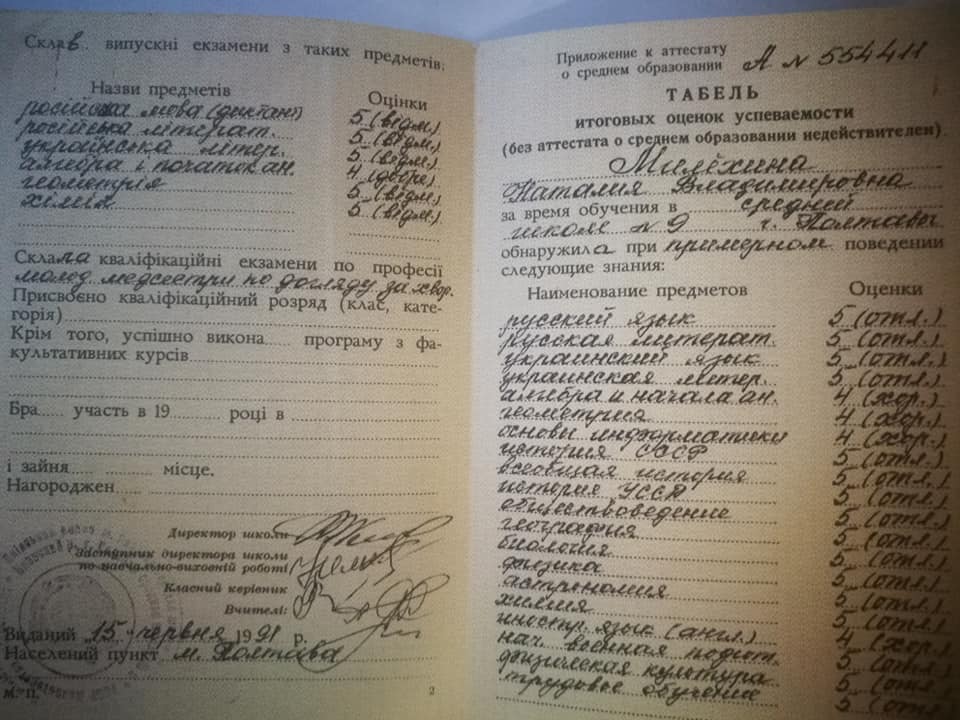 Склав випускні екзамени з таких предметів:
Назви предметів Оцінки
російська мова (диктант) 5 (відм.)
російська літерат. 5 (відм.)
українська літер. 5 (відм.)
алгебра і початок ан. 4 (добре)
геометрія 5 (відм.)
хімія 5 (відм.)
Склала кваліфікаційні екзамени по професії
молод. медсестри по догляду за хвор.
Присвоєно кваліфікаційний розряд (клас, кате-
горія)
Крім того, успішно викона программу з фа-
культативних курсів
Бра участь в 19 році в
і зайня місце.
Нагороджен
Директор школи
Заступник директора школи
по навчально-виховній роботі
Класний керівник
Вчителі:
Виданий „15" червня 1991 р.
Населений пункт м. Полтава
М. П.
2
Приложение к аттестату
о среднем образовании А № 554411
ТАБЕЛЬ
итоговых оценок успеваемости
(без аттестата о среднем образовании недействителен).
Милёхина
Наталия Владимировна
за время обучения в средней
школе №9 г. Полтавы
обнаружила при примерном поведении
следующие знания:
Наименование предметов Оценки
русский язык 5 (отл.)
русская литерат. 5 (отл.)
украинский язык 5 (отл.)
украинская литер. 5 (отл.)
алгебра и начала ан. 4 (хор.)
геометрия 4 (хор.)
основы информатики 4 (хор.)
история СССР 5 (отл.)
всеобщая история 5 (отл.)
история УССР 5 (отл.)
обществоведение 5 (отл.)
география 5 (отл.)
биология 5 (отл.)
физика 5 (отл.)
астрономия 5 (отл.)
химия 5 (отл.)
иностр. язык (англ.) 5 (отл.)
нач. военная подгот. 4 (хор.)
физическая культура 5 (отл.)
трудовое обучение 5 (отл.)